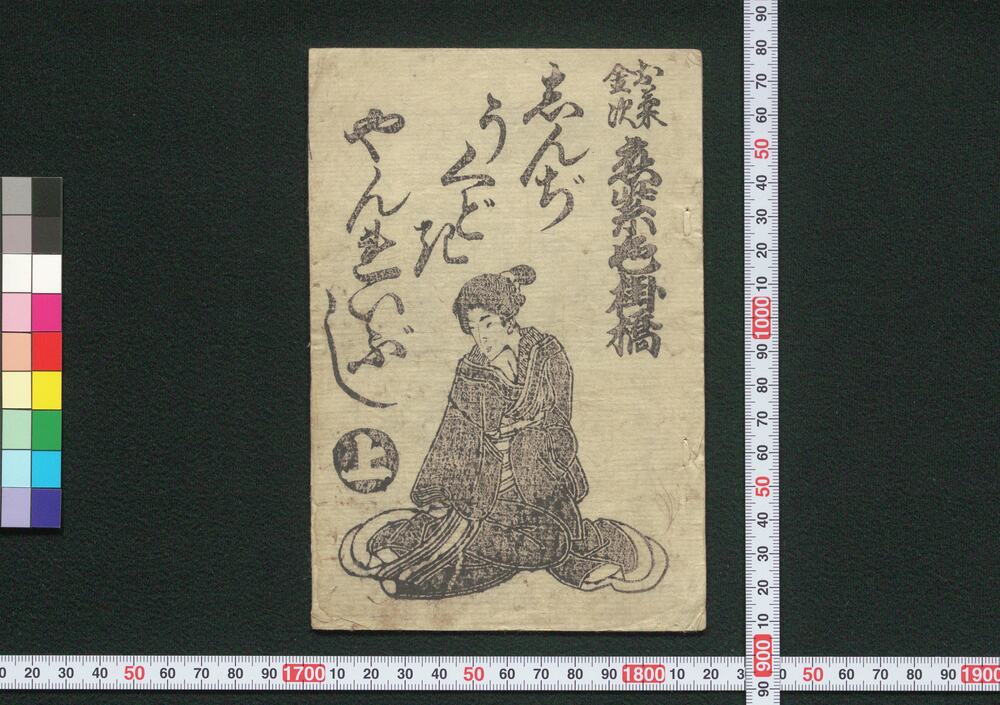 お粂
金次
真柴色掛橋
志んぢ
うくどき
やんれいぶし
上
90 80 70 60 50 40 30 20 10 1000 90 80 70 60 50 40 30 20 10 900 90
20 30 40 50 60 70 80 90 1700 10 20 30 40 50 60 70 80 90 1800 10 20 3
40 50 60 70 80 90 1900